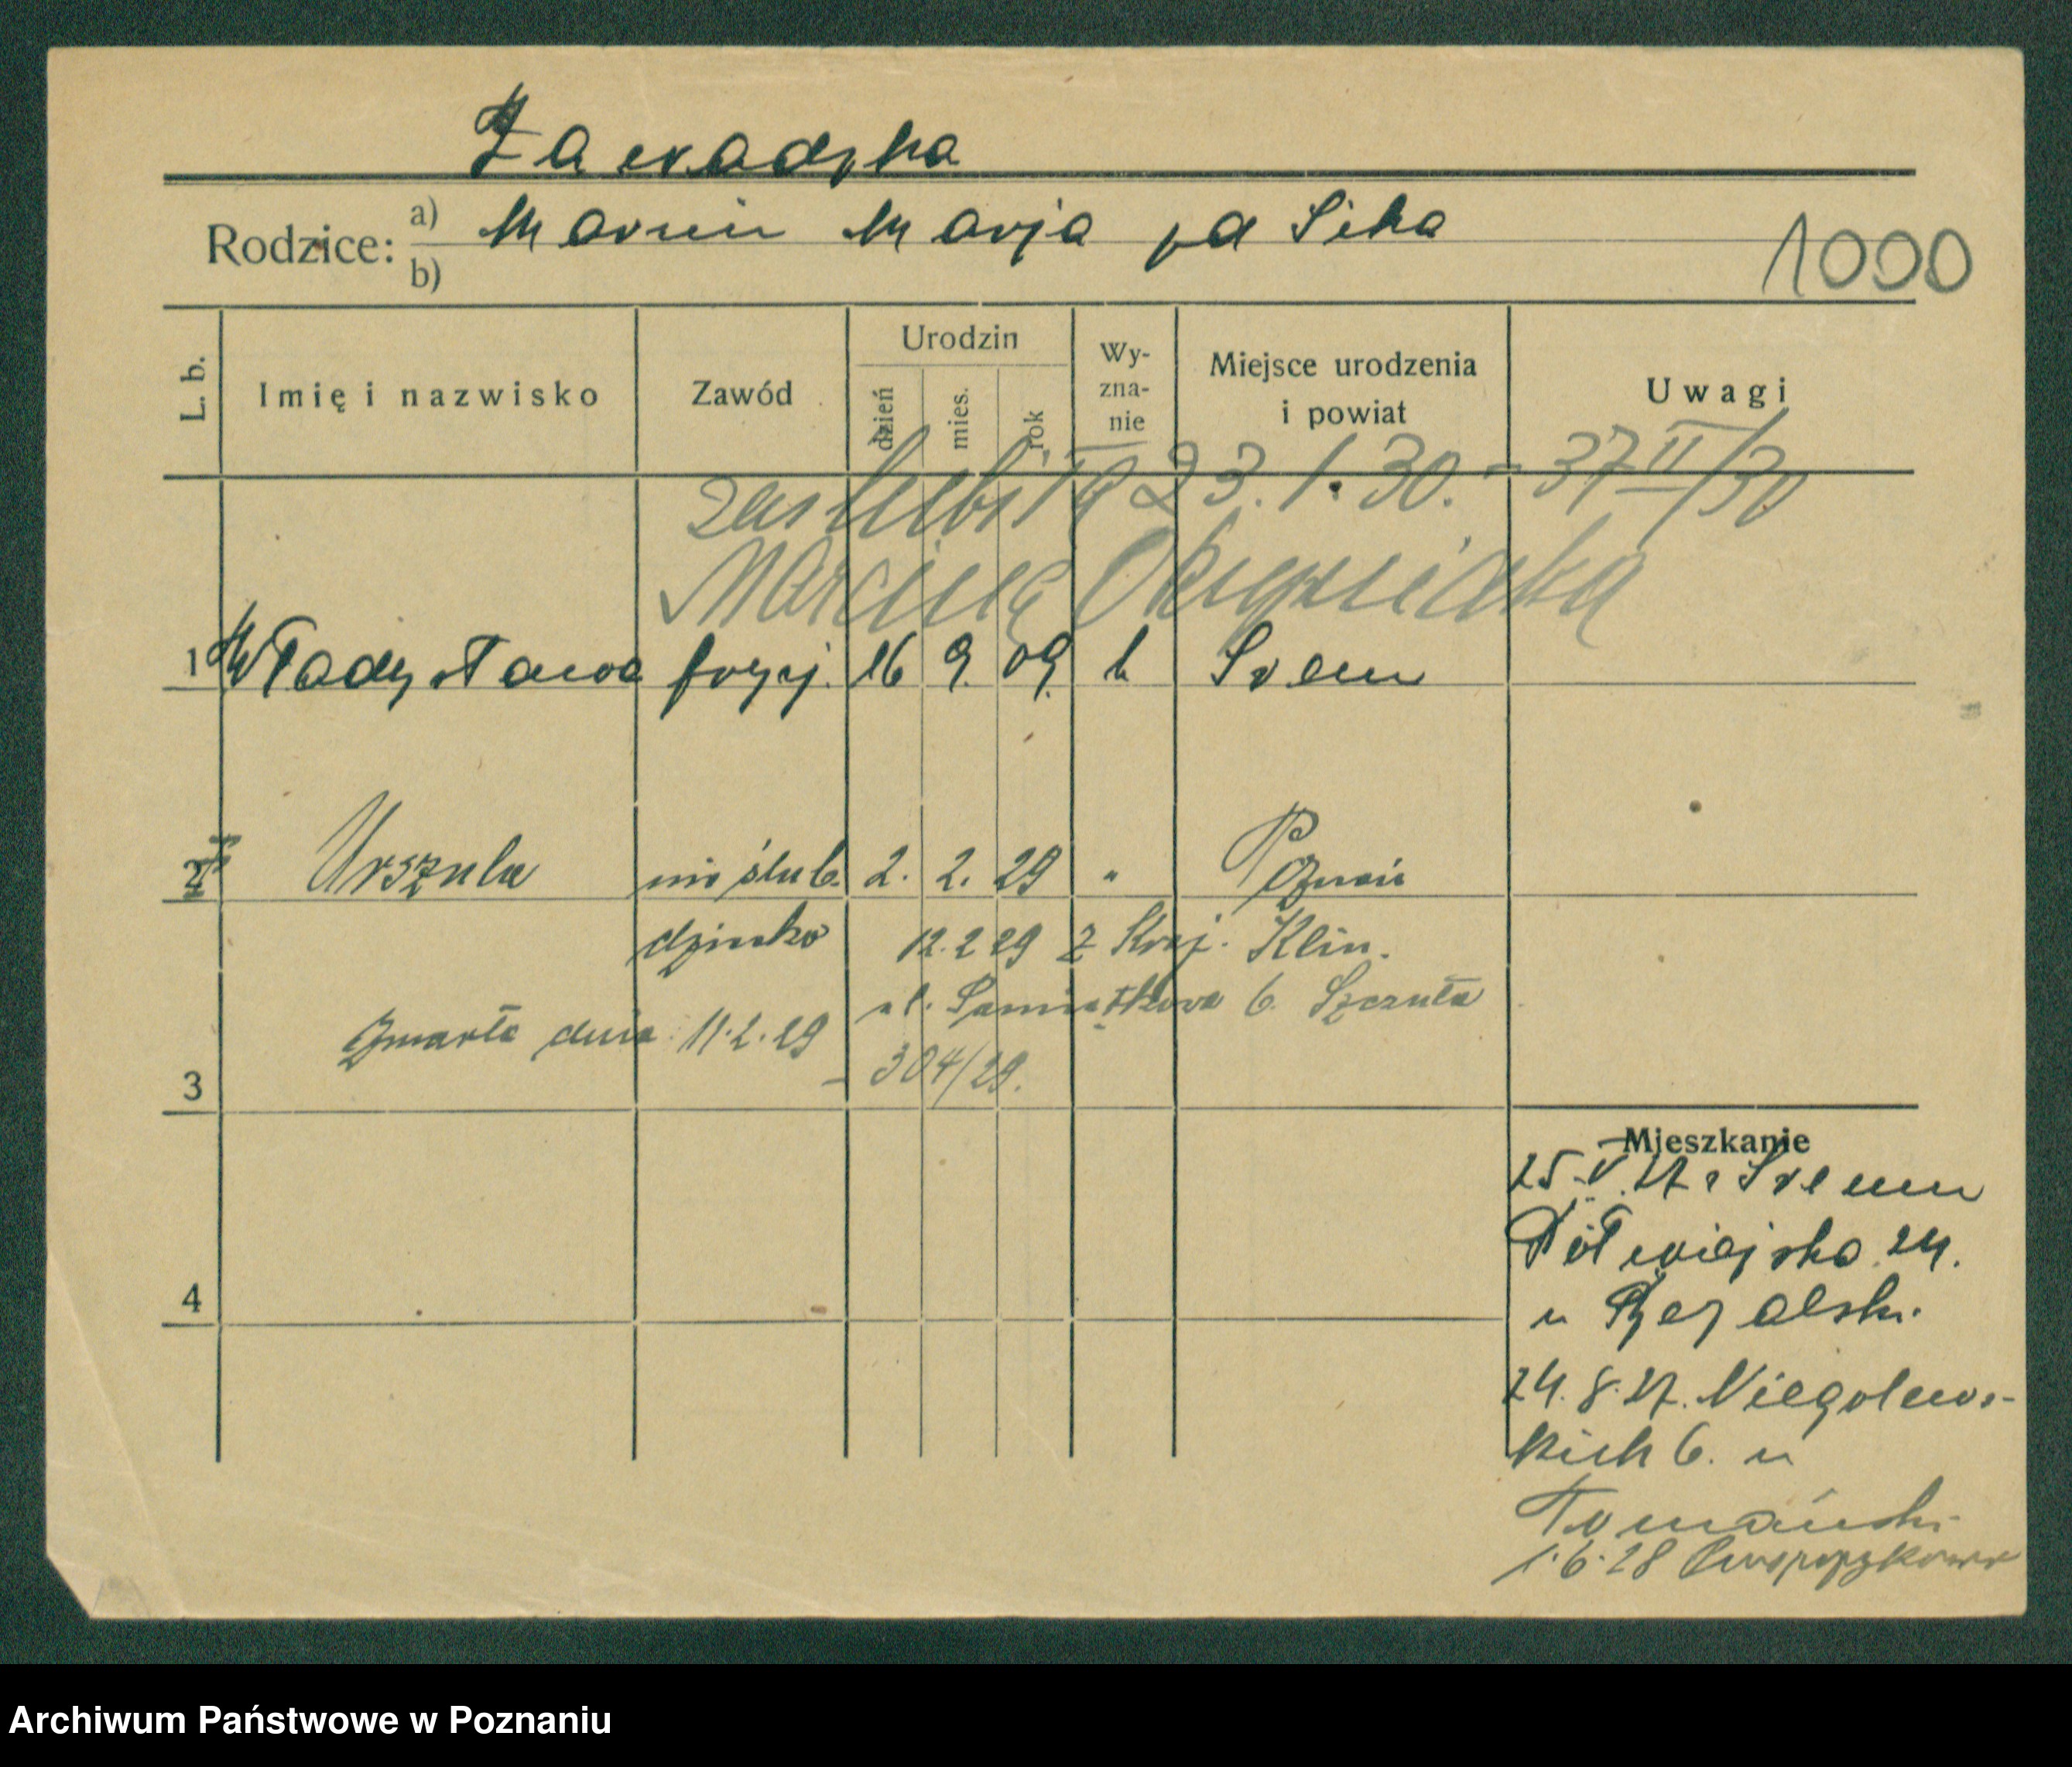 Zawadzka
Rodzice: a) Marcin Marja zd Sika
b)
1000
L. b.
Imię i nazwisko
Zawód
Urodzin
dzień
mies.
rok
Wy-
zna-
nie
Miejsce urodzenia
i powiat
Uwagi
zaślubiła 23.1.30. - 37 II/30
Marcina
1 Władysława fryzj. 16 9. 09. k Srem
2 Urszula nieślub. 2. 2. 29 " Poznań
dziecko 12.2 29 z Kraj. Klin.
ul. 6. Szczuła
Zmarła dnia 11.2.29
- 304/29.
3
4
Mieszkanie
25.V.27. z Srem
Półwiejska 24.
u
24.8.27. Niegolews-
kich 6. u
Tomański
1.6.28
Archiwum Państwowe w Poznaniu